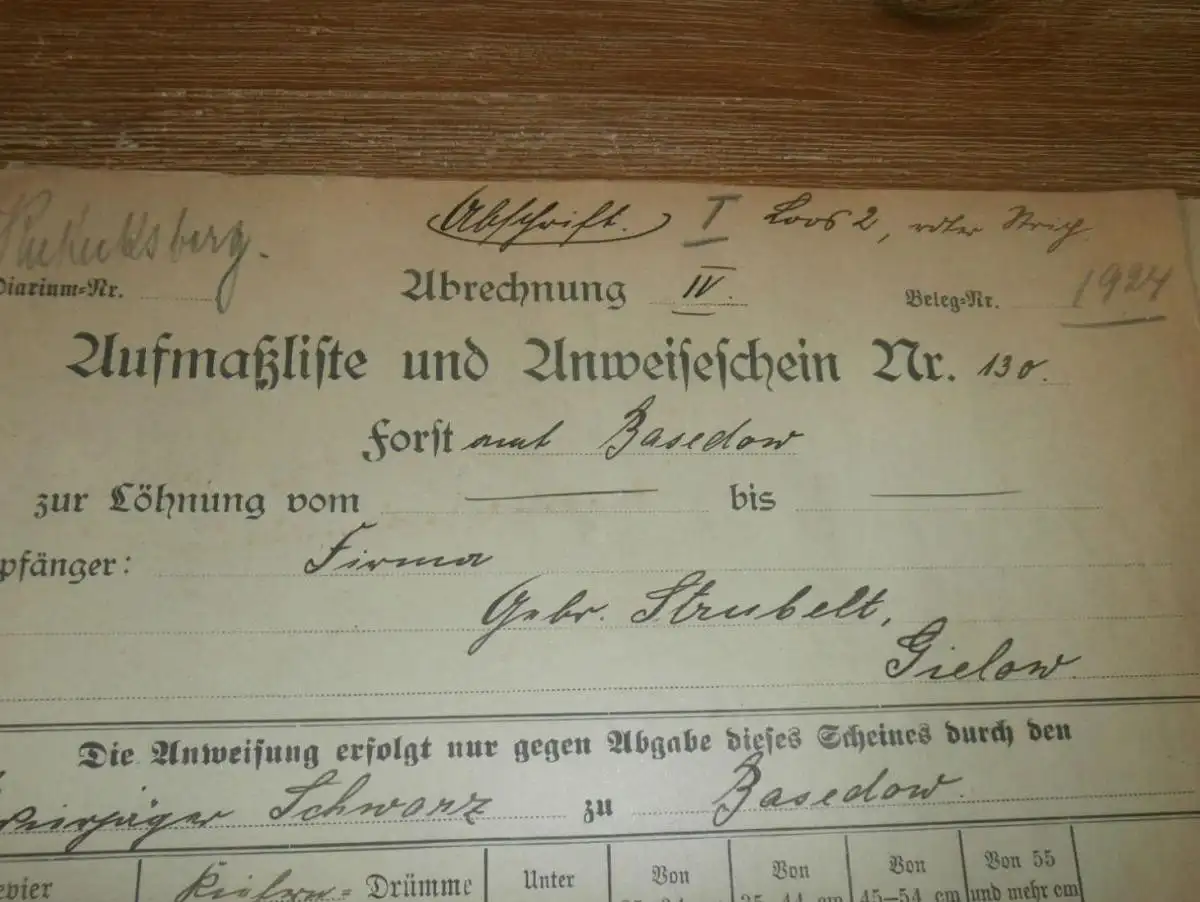 Kukuksberg. (Abschrift.) I Loos 2, roter Strich
Diarium-Nr. Abrechnung IV. Beleg-Nr. 1924
Aufmaßliste und Anweiseschein Nr. 130.
Forstamt Basedow
zur Löhnung vom — bis —
pfänger: Firma
Gebr. Strubelt,
Gielow.
Die Anweisung erfolgt nur gegen Abgabe dieses Scheines durch den
Revierjäger Schwarz zu Basedow.
evier Kiefern- Drümme Unter Von Von Von Von 55
35-44 cm 45-54 cm und mehr cm